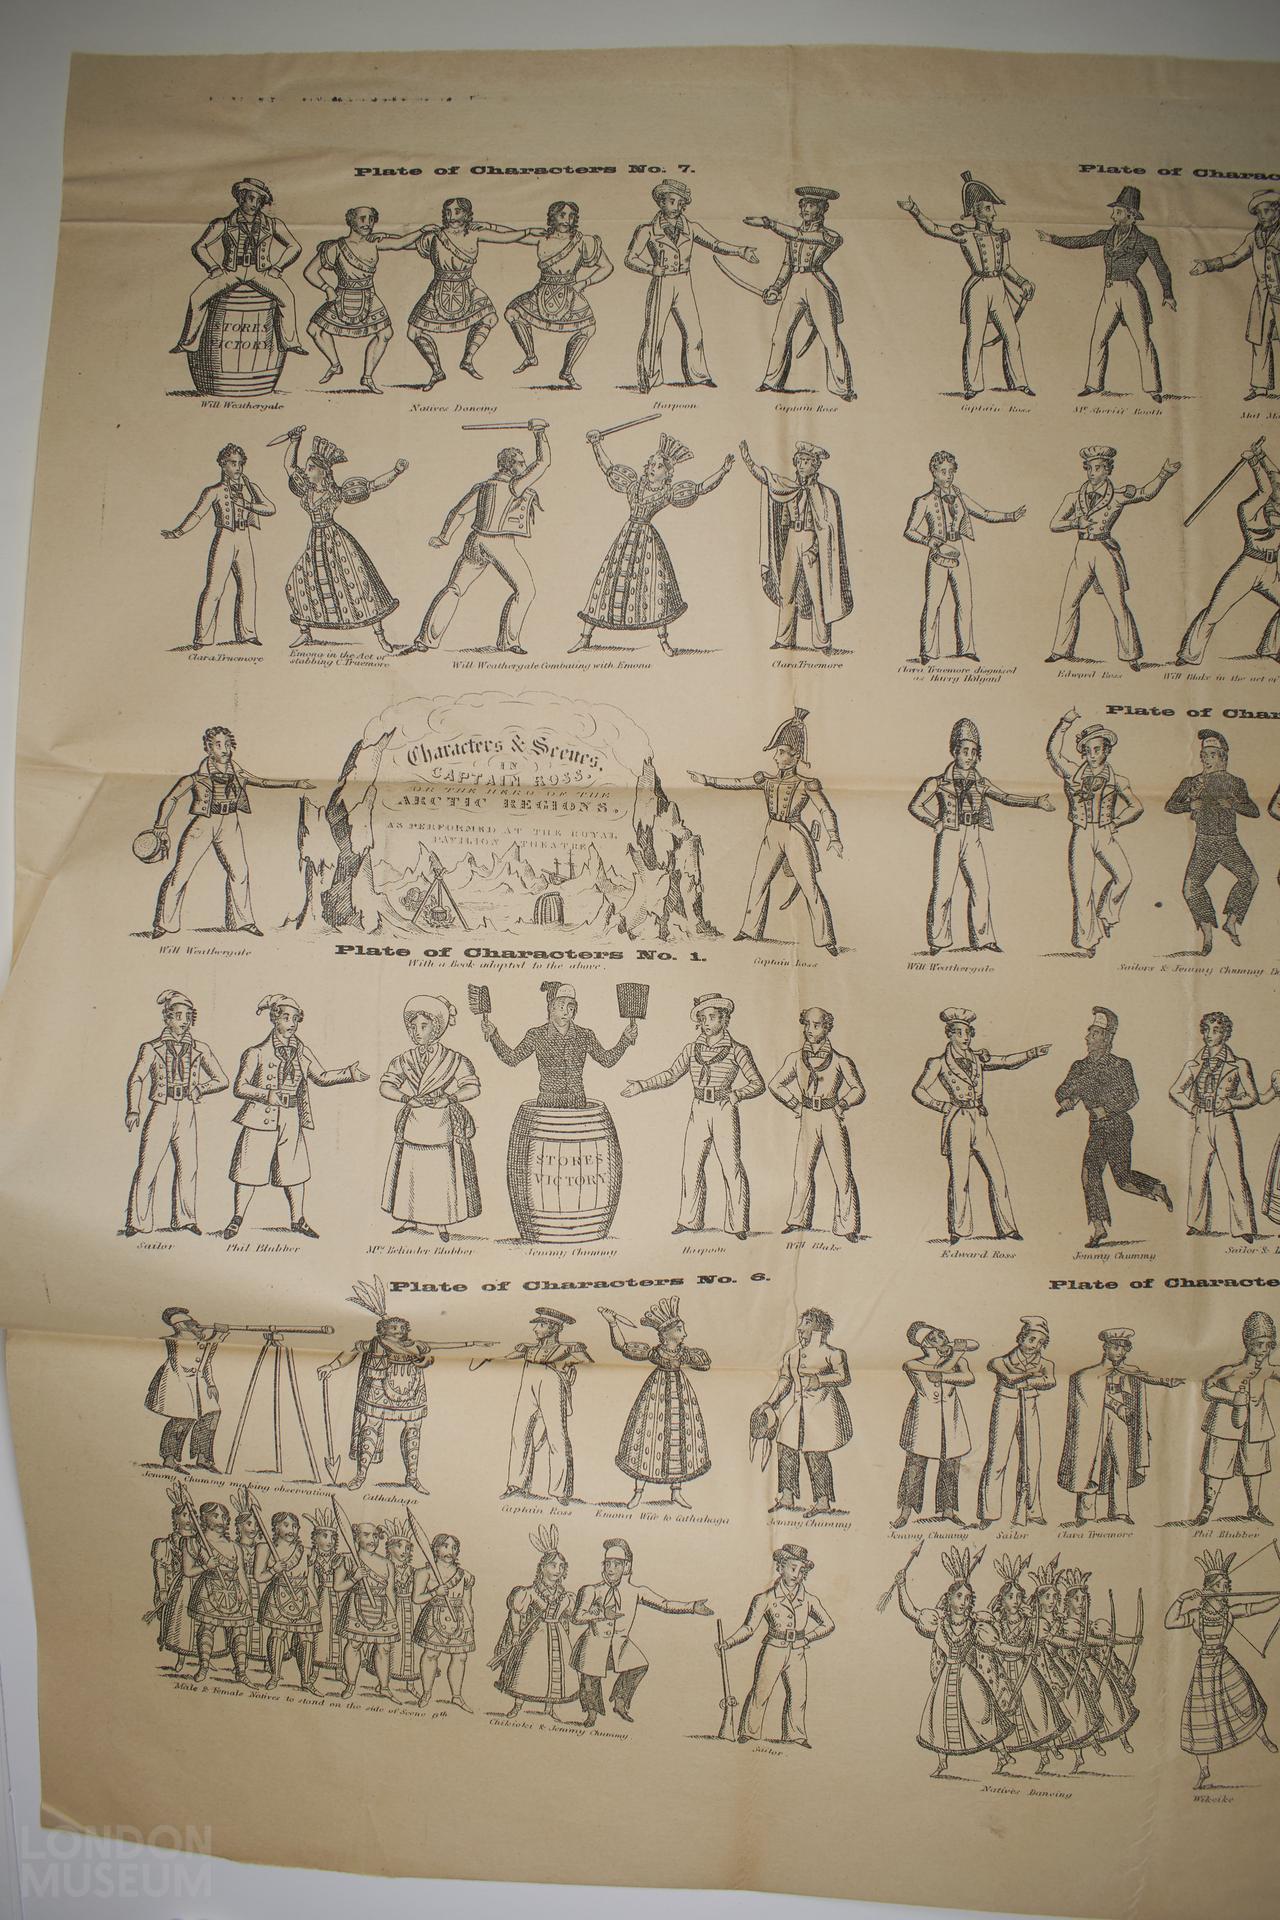 Plate of Characters No. 7.
STORES
VICTORY
Will Weathergale
Natives Dancing
Harpoon
Captain Ross
Clara Truemore
Emona in the Act of
stabbing C. Truemore
Will Weathergale Combating with Emona
Clara Truemore
Will Weathergale
Characters & Scenes,
IN
CAPTAIN ROSS,
OR THE HERO OF THE
ARCTIC REGIONS.
AS PERFORMED AT THE ROYAL
PAVILION THEATRE
Plate of Characters No. 1.
With a Book adapted to the above.
Captain Ross
STORES
VICTORY
Sailor
Phil Blubber
Mrs Belinder Blubber
Jemmy Chummy
Harpoon
Will Blake
Plate of Characters No. 6.
Jemmy Chummy making observations
Cathahaga
Captain Ross
Emona Wife to Cathahaga
Jemmy Chummy
Male & Female Natives to stand on the side of Scene 9th
Chikioki & Jemmy Chummy.
Sailor.
Plate of Charac
Captain Ross
Mr. Sheriff Booth
Clara Truemore disguised
as Harry Halyard
Edward Ross
Will Blake in the act of
Plate of Char
Will Weathergale
Sailors & Jemmy Chummy
Edward Ross
Jemmy Chummy
Sailor &
Plate of Characte
Jemmy Chummy
Sailor
Clara Truemore
Phil Blubber
Natives Dancing
Wikeike
LONDON
MUSEUM